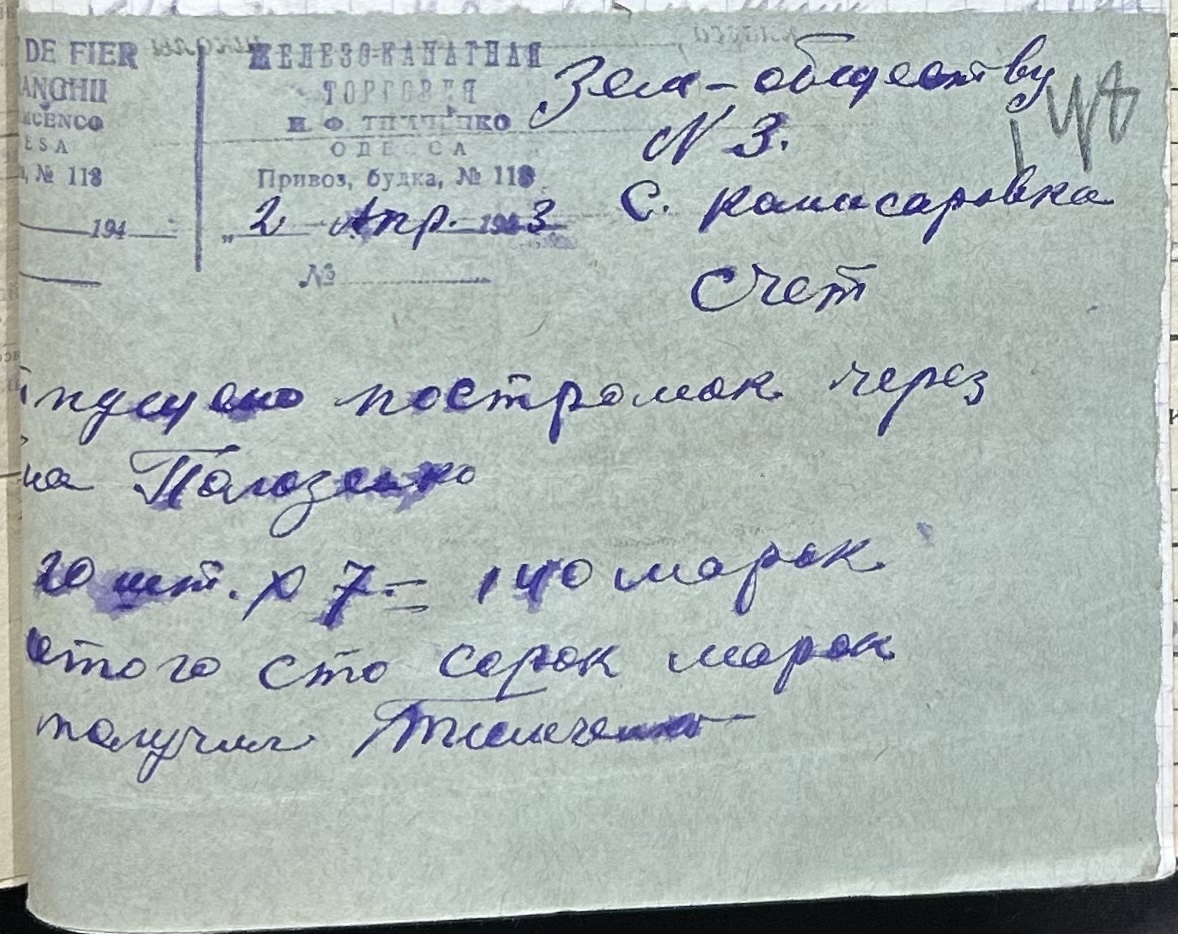 DE FIER
ESA
№ 118
194
ЖЕЛЕЗО-КАНАТНАЯ
ТОРГОВЛЯ
И. Ф. ТИМЧЕНКО
ОДЕССА
Привоз, будка, № 118
„2 Апр. 1943
№
Зем-обществу
N 3.
С. Комисаровка
Счет
тпущено постромок через
на Полозенко
20 шт. х 7 = 140 марок
етого сто сорок марок
получил Тимченко